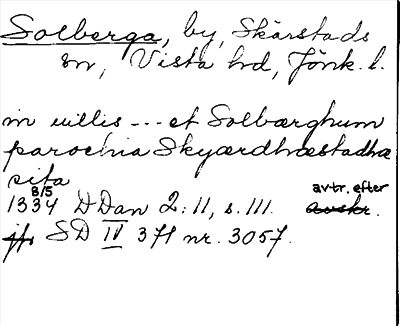 Solberga, by, Skärstads
sn, Vista hd, Jönk. l.
in uillis --- et Solbærghum
parochia Skyærdhæstadhæ
sita
8/5 avtr. efter
1334 DDan 2:11, s. 111. avskr.
jfr SD IV 371 nr. 3057.